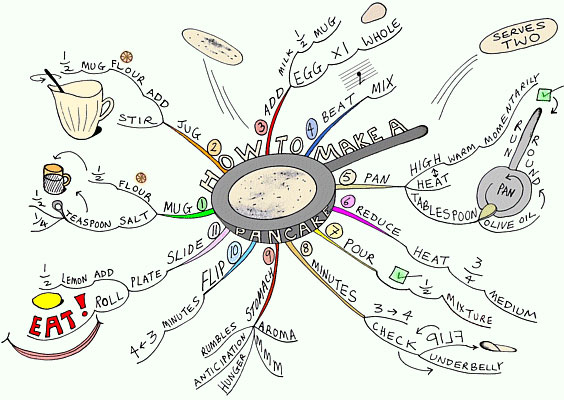 HOW TO MAKE A
PANCAKE
SERVES
TWO
1
MUG
1/2 FLOUR
1/2
1/4 TEASPOON SALT
2
JUG
1/2 MUG FLOUR ADD
STIR
3
ADD
MILK 1/2 MUG
EGG X1 WHOLE
4
BEAT MIX
5
PAN
HIGH WARM MOMENTARILY
HEAT
TABLESPOON OLIVE OIL
RUN ROUND
PAN
6
REDUCE
HEAT 3/4 MEDIUM
7
POUR
1/2 MIXTURE
8
MINUTES
3 → 4
CHECK FLIP
UNDERBELLY
9
STOMACH
RUMBLES
ANTICIPATION
HUNGER
AROMA
MMM
10
FLIP
MINUTES 3 → 4
11
SLIDE
PLATE
1/2 LEMON ADD
ROLL
EAT!